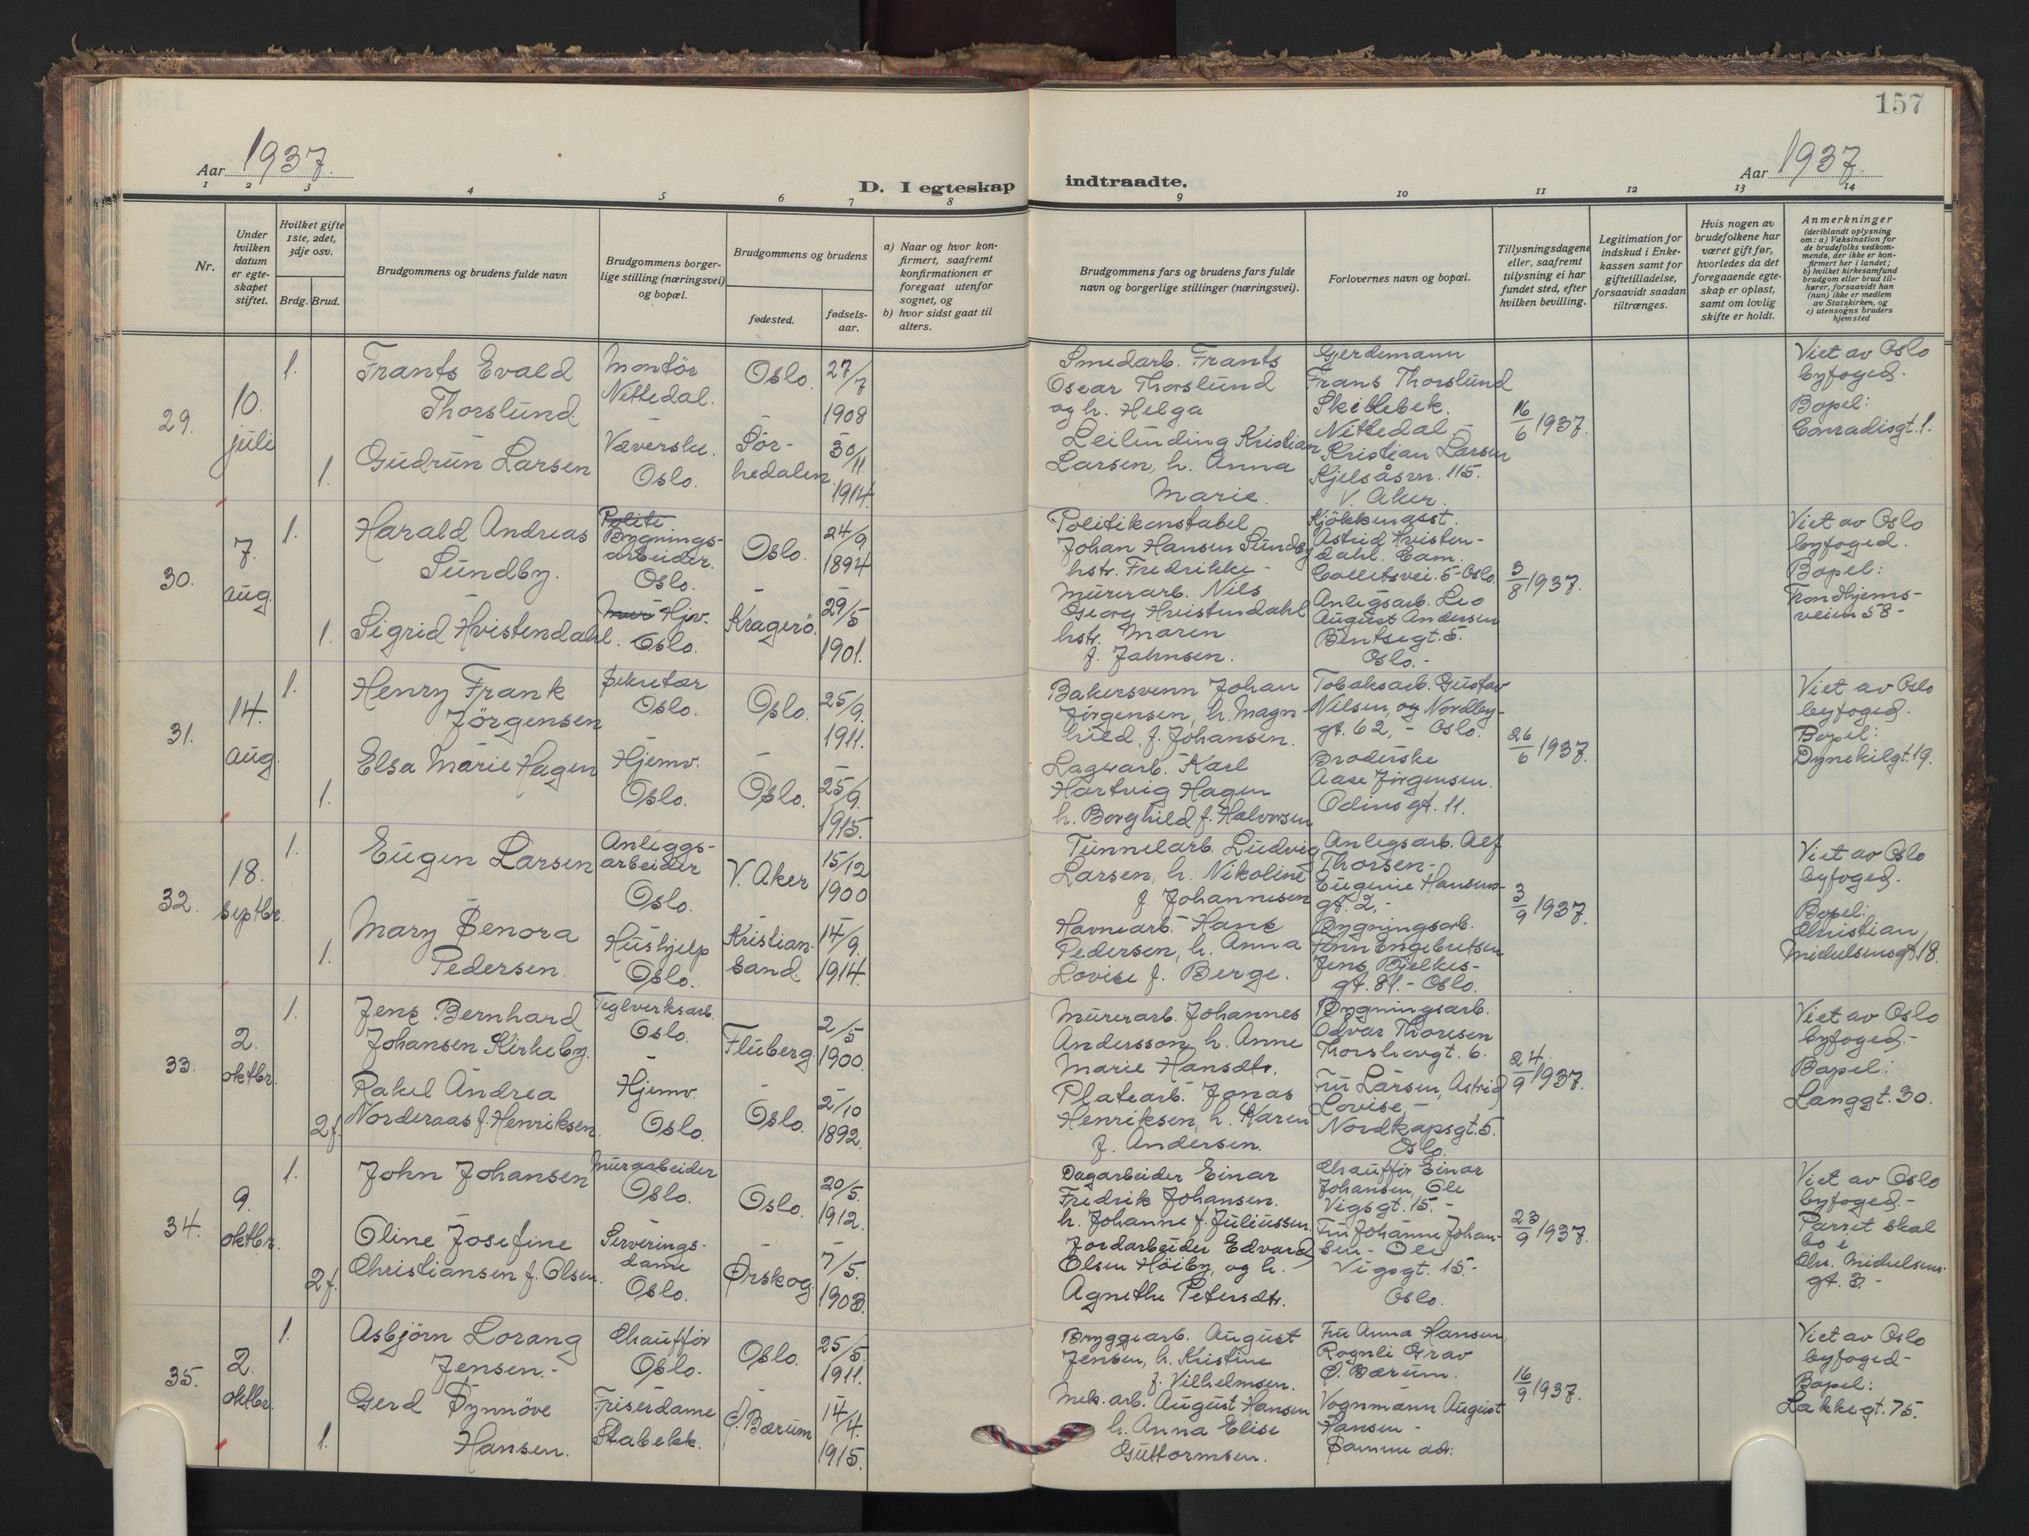 157
Aar 1937.
D. I egteskap indtraadte.
Aar 1937.
1 2 3 4 5 6 7 8 9 10 11 12 13 14
Nr.
Under hvilken datum er egteskapet stiftet.
Hvilket gifte 1ste, 2det, 3dje osv.
Brdg. Brud.
Brudgommens og brudens fulde navn
Brudgommens borgerlige stilling (næringsvei) og bopæl.
Brudgommens og brudens
fødested.
fødselsaar.
a) Naar og hvor konfirmert, saafremt konfirmationen er foregaat utenfor sognet, og
b) hvor sidst gaat til alters.
Brudgommens fars og brudens fars fulde navn og borgerlige stillinger (næringsvei).
Forlovernes navn og bopæl.
Tillysningsdagene eller, saafremt tillysning ei har fundet sted, efter hvilken bevilling.
Legitimation for indskud i Enkekassen samt for giftetilladelse, forsaavidt saadan tiltrænges.
Hvis nogen av brudefolkene har været gift før, hvorledes da det foregaaende egteskap er opløst, samt om lovlig skifte er holdt.
Anmerkninger (deriblandt oplysning om: a) Vaksination for de brudefolks vedkommende, der ikke er konfirmert her i landet; b) hvilket kirkesamfund brudgom eller brud tilhører, forsaavidt han (hun) ikke er medlem av Statskirken, og c) utensogns bruders hjemsted
29.
10. juli
1.
Frants Evald
Thorslund
Montör
Nittedal.
Oslo.
27/7
1908
1.
Gudrun Larsen
Væverske.
Oslo.
Sör-
kedalen
30/11
1914
Smedarb. Frants
Oscar Thorslund
og h. Helga
Kristian
Larsen, h. Anna
Marie.
Gjerdemann
Frans Thorslund
Skillebek.
Nittedal -
Kristian Larsen
Kjelsåsvn. 115.
V. Aker.
16/6 1937.
Viet av Oslo
byfoged.
Bopel:
Conradisgt. 1.
30.
7. aug.
1.
Harald Andreas
Sundby.
Politi
Bygnings-
arbeider.
Oslo.
Oslo.
24/9
1894
1.
Sigrid Hvistendahl.
Hjv.
Oslo.
Kragerö.
29/5
1901.
Politikonstabel
Johan Hansen Sundby
hstr. Fredrikke -
Murerarb. Nils
Georg Hvistendahl
hstr. Maren
f. Jahnsen.
Kjökkenasst.
Astrid Hvisten-
dahl. Cam.
Colletsvei. 5 - Oslo.
Anlegsarb. Leo
August Andersen
Bentsegt. 5.
Oslo. -
3/8 1937.
Viet av Oslo
byfoged.
Bopel:
Trondhjems-
veien 58 -
31.
14. aug.
1.
Henry Frank
Jörgensen
Sekretær
Oslo.
Oslo.
25/9.
1911.
1.
Elsa Marie Hagen
Hjemv.
Oslo.
Oslo.
25/9.
1915.
Bakersvenn Johan
Jörgensen, h. Magn-
hild, f. Johansen.
Lagerarb. Karl
Hartvig Hagen
h. Borghild f. Halvorsen
Tobaksarb. Gustav
Nilsen, og Nordby-
gt. 62, - Oslo.
Broderske
Aase Jörgensen.
Odinsgt. 11.
26/6 1937.
Viet av Oslo
byfoged.
Bopel:
Dynekilgt. 19.
32.
18. septbr.
1.
Eugen Larsen
Anleggs-
arbeider
Oslo.
V. Aker
15/12
1900
1.
Mary Senora
Pedersen.
Hushjelp
Oslo.
Kristian-
sand.
14/9.
1914
Tunnelarb. Ludvig
Larsen, h. Nikoline
f. Johannesen
Havnearb. Hans
Pedersen, h. Anna
Lovise f. Berge.
Anlegsarb. Alf
Thorsen -
Eugenie Hansens-
gt. 2, -
Bygningsarb.
Engebretsen
Jens Bjelkes-
gt. 81. - Oslo.
3/9 1937.
Viet av Oslo
byfoged.
Bopel:
Christian
Michelsensgt. 18.
33.
2. oktbr.
1.
Jens Bernhard
Johansen Kirkeby.
Teglverksarb.
Oslo.
Fluberg
2/5
1900.
2f.
Rakel Andrea
Norderaas f. Henriksen.
Hjemv.
Oslo.
Oslo.
2/10
1892.
Murerarb. Johannes
Andersson, h. Anne
Marie Hansdtr.
Platearb. Jonas
Henriksen, h. Karen
f. Andersen.
Bygningsarb.
Odvar Thoresen
Thorshovgt. 6.
Fru Larsen, Astrid
Lovise, -
Nordkapsgt. 5.
Oslo.
24/9 1937.
Viet av Oslo
byfoged. -
Bopel:
Langgt. 30.
34.
9. oktbr.
1.
John Johansen
Murarbeider
Oslo.
Oslo.
20/5.
1912.
2f.
Oline Josefine
Christiansen f. Olsen.
Serverings-
dame
Oslo.
Ørskog.
7/5.
1903.
Dagarbeider Einar
Fredrik Johansen.
h. Johanne f. Juliussen.
Jordarbeider Edvard
Olsen Höiby, og h.
Agnethe Petersdtr.
Chaufför Einar
Johansen, Ole
Vigsgt. 15. -
Fru Johanne Johan-
sen - Ole
Vigsgt. 15. -
Oslo.
23/9 1937.
Viet av Oslo
byfoged -
Parret skal
bo i
Chr. Michelsens-
gt. 3. -
35.
2. oktbr.
1.
Asbjörn Lorang
Jensen. -
Chaufför
Oslo.
Oslo.
25/5.
1911.
1.
Gerd Synnöve
Hansen.
Friserdame
Stabekk.
Ö. Bærum
14/4.
1915.
Bryggearb. August
Jensen, h. Kristine
f. Vilhelmsen.
Mek. arb. August Hansen
h. Anna Elise
Guttormsen.
Fru Anna Hansen,
Rognli Grav
Ö. Bærum.
Vognmann August
Hansen -
Samme adr.
16/9 1937.
Viet av Oslo
byfoged -
Bopel:
Lakkegt. 75.